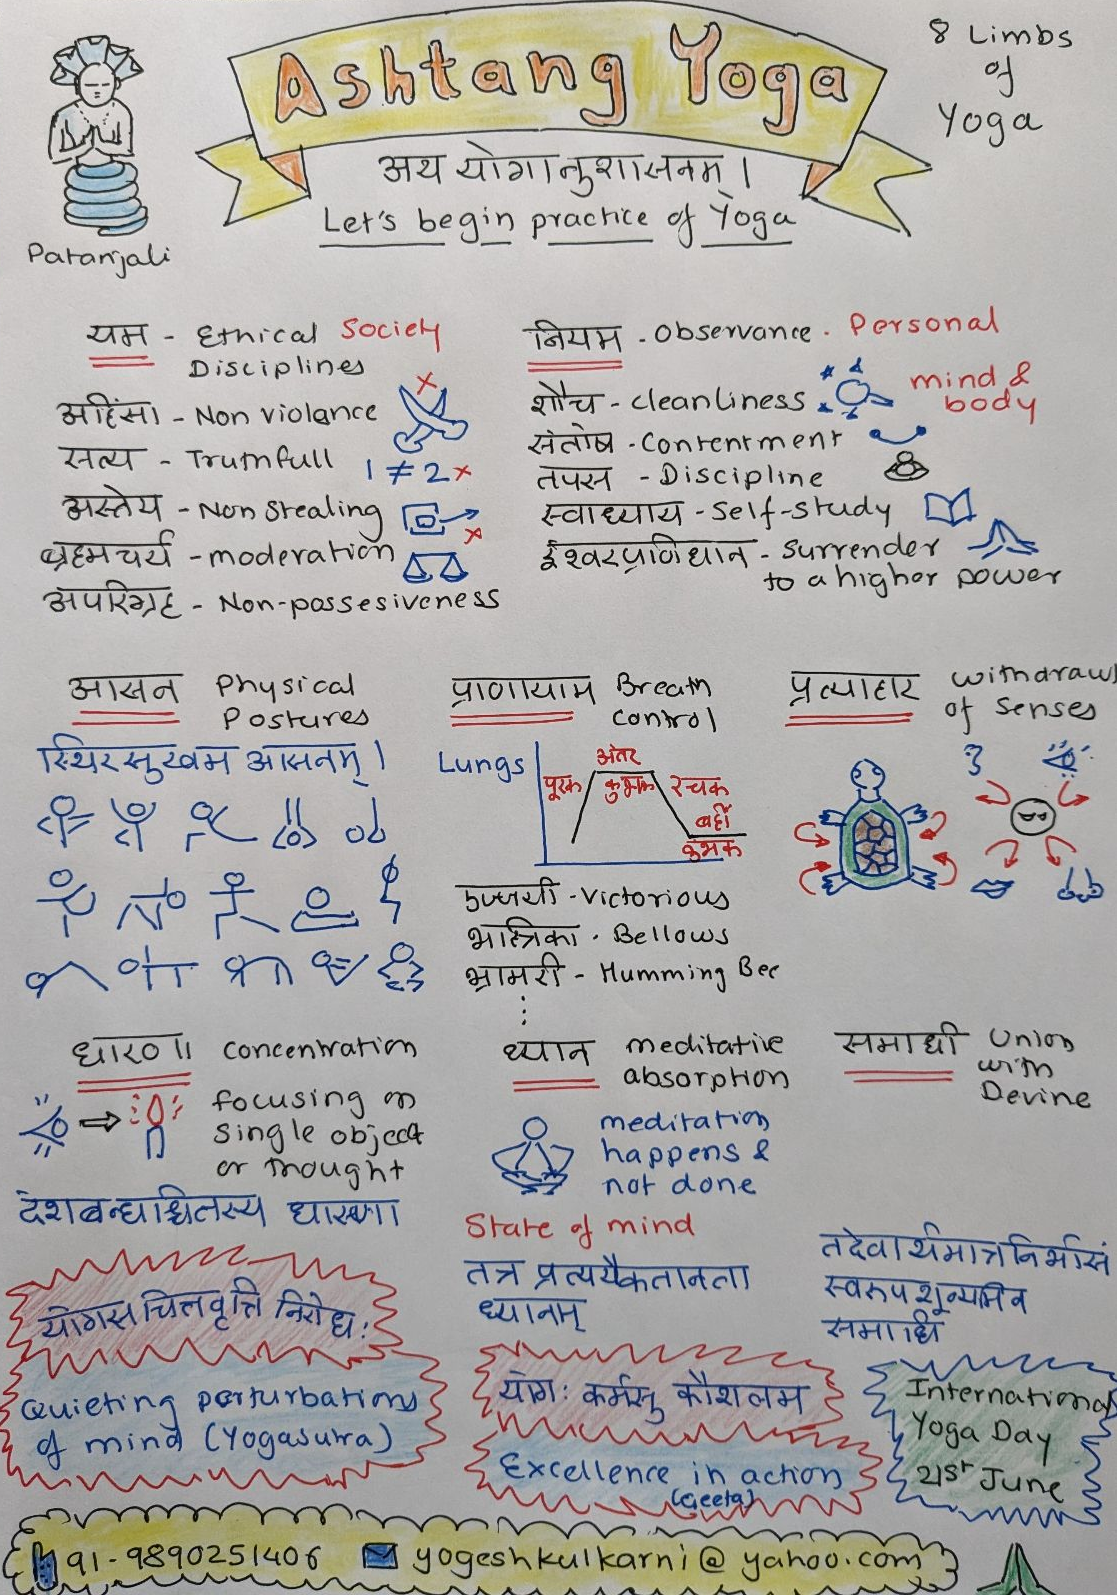 Ashtang Yoga
8 Limbs
of
Yoga
अथ योगानुशासनम् ।
Let's begin practice of Yoga
Patanjali
यम - Ethical Society
Disciplines
अहिंसा - Non violance
सत्य - Truthfull 1 ≠ 2 x
अस्तेय - Non stealing
ब्रह्मचर्य - moderation
अपरिग्रह - Non-possesiveness
नियम - observance - Personal
शौच - cleanliness mind &
body
संतोष - contentment
तपस - Discipline
स्वाध्याय - self-study
ईश्वरप्राणिधान - surrender
to a higher power
आसन Physical
Postures
स्थिरसुखम आसनम् ।
प्राणायाम Breath
control
Lungs
पूरक
अंतर
कुंभक
रेचक
बर्ही
कुंभक
उज्जयी - Victorious
भास्त्रिका - Bellows
भ्रामरी - Humming Bee
प्रत्याहार withdraws
of senses
धारणा concentration
focusing on
single object
or thought
देशबन्धाश्चितस्य धारणा
ध्यान meditative
absorption
meditation
happens &
not done
State of mind
तत्र प्रत्ययैकतानता
ध्यानम्
समाधी Union
with
Devine
तदेवार्थमात्रनिर्भासं
स्वरुपशून्यमिव
समाधि
योगस चित्तवृत्ति निरोध:
Quieting perturbations
of mind (Yogasutra)
योग: कर्मसु कौशलम
Excellence in action
(Geeta)
International
Yoga Day
21st June
91-9890251406 yogeshkulkarni@yahoo.com